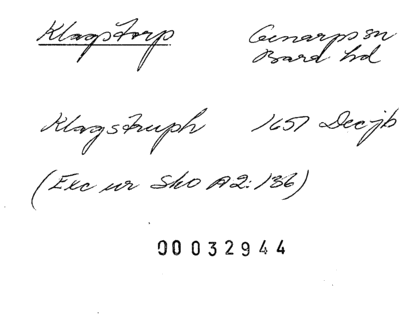 Klagstorp Genarps sn
Bara hd
Klagstruph 1657 Dec jb
(Exc ur Sko A2:136)
00032944